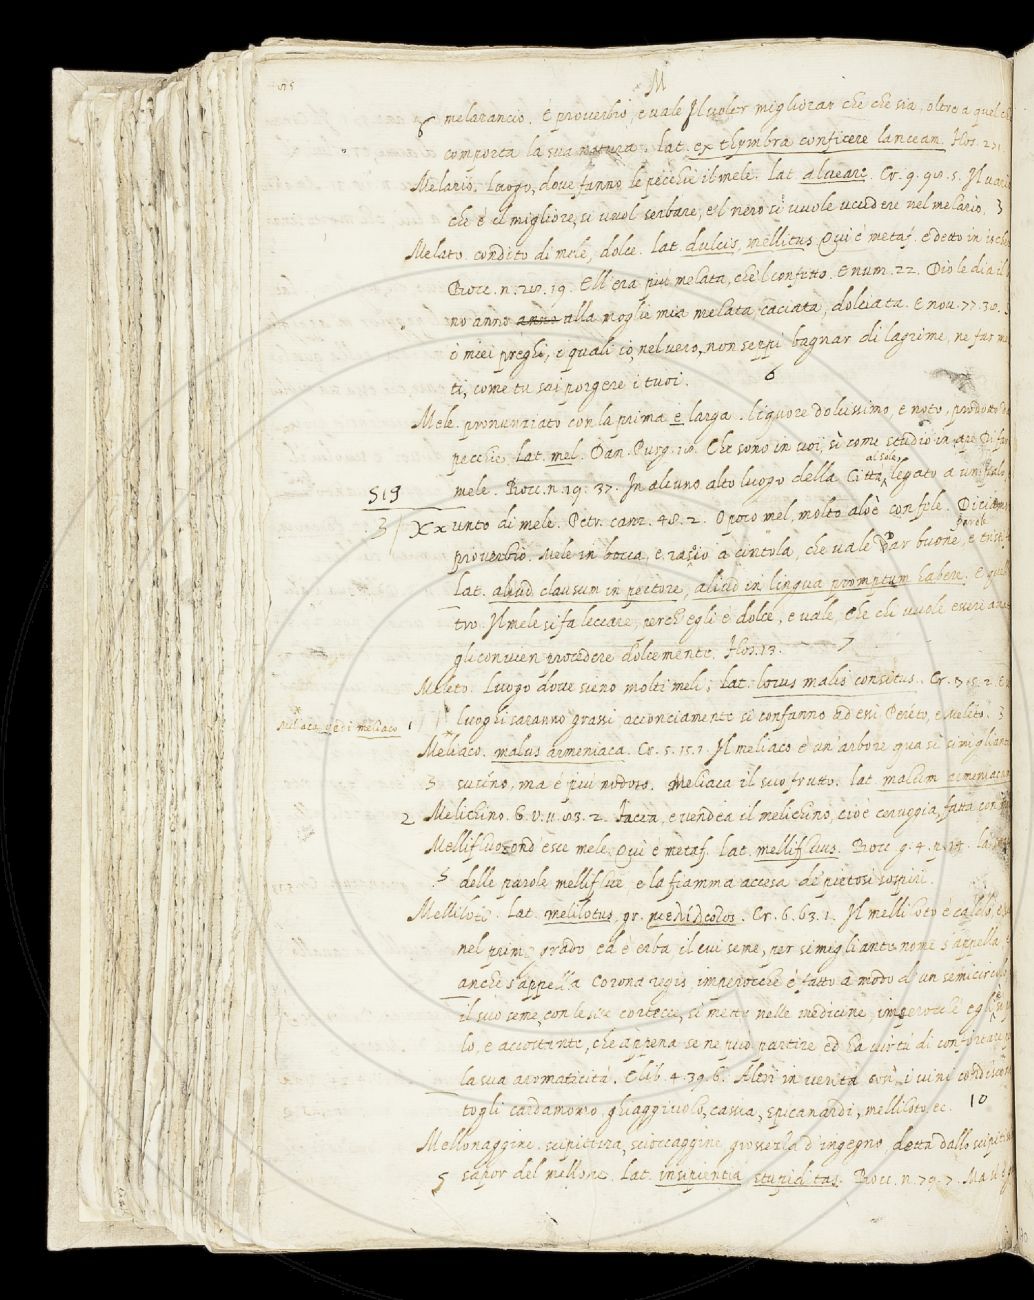 M
melarancio. è proverbio, e vale Il voler migliorar che che sia, oltre a quel
6
comporta la sua natura. lat. ex thymbra conficere lanceam. Flos. 231.
Melario. luogo, dove fanno le pecchie il mele. lat. alveare. Cr. 9. 98. 5. Il
che è il migliore, si vuol serbare, e'l nero si vuole uccidere nel melario. 3
Melato. condito di mele, dolce. lat. dulcis, mellitus. Qui è metaf. e detto in
Bocc. n. 28. 19. Ell'era più melata, che'l confetto. E num. 22. Dio le dia il
no anno anno alla moglie mia melata, caciata, dolciata. E nov. 77. 30.
i miei preghi, i quali io, nel vero, non seppi bagnar di lagrime, ne far
ti, come tu sai porgere i tuoi. 6
Mele. pronunziato con la prima e larga. liquore dolcissimo, e noto, prodotto
pecchie. Lat. mel. Dan. Purg. 18. Che sono in voi, sì come studio in ape Di far
al sole
mele. Bocc. n. 19. 37. In alcuno alto luogo della Città, legato a un palo,
513
3 Xx unto di mele. Petr. canz. 48. 2. O poco mel, molto aloè con fele. Diciamo
parole
proverbio. Mele in bocca, e rasoio a cintola, che vale Dar buone, e
lat. aliud clausum in pectore, aliud in lingua promptum habere. E
tro. Il mele si fa leccare, perch'egli è dolce, e vale, che chi vuole essere
gli convien procedere dolcemente. Flos. 13. 7
Meleto. Luogo dove sieno molti meli. lat. locus malis consitus. Cr. 3. 2. E
luoghi saranno grassi, acconciamente si confanno ad essi Pereto, e Meleto. 3
Meliaca vedi meliaco 1
Meliaco. malus armeniaca. Cr. 5. 15. 1. Il meliaco è un'arbore quasi simigliante
3 susino, ma è più nodoso. Meliaca il suo frutto. lat. malum armeniacum
2 Melichino. G. V. 11. 83. 2. Facea, e vendea il melichino, cioè cervogia, fatta con
Mellifluo. ond'esce mele. Qui è metaf. lat. mellifluus. Bocc. g. 4. p. 14. la
5 delle parole melliflue, e la fiamma accesa de' pietosi sospiri.
Melliloto. Lat. melilotus, gr. μελίλωτος. Cr. 6. 63. 1. Il melliloto è caldo,
nel primo grado ed è erba il cui seme, per simigliante nome s'appella
anche s'appella Corona regis, imperocchè è fatto a modo d'un semicircolo
il suo seme, con le sue cortecce, si mette nelle medicine, imperocchè egli
lo, e accostante, che appena se ne può partire ed ha virtù di confortare
la sua aromaticità. E lib. 4. 39. 6. Alcuni in verità con i vini
togli cardamomo, ghiaggiuolo, cassia, spicanardi, melliloto, ec. 10
Mellonaggine. scipitezza, scioccaggine, grossezza d'ingegno, detta dallo scipito
5 sapor del mellone. lat. insipientia stupiditas. Bocc. n. 79. 7. Ma